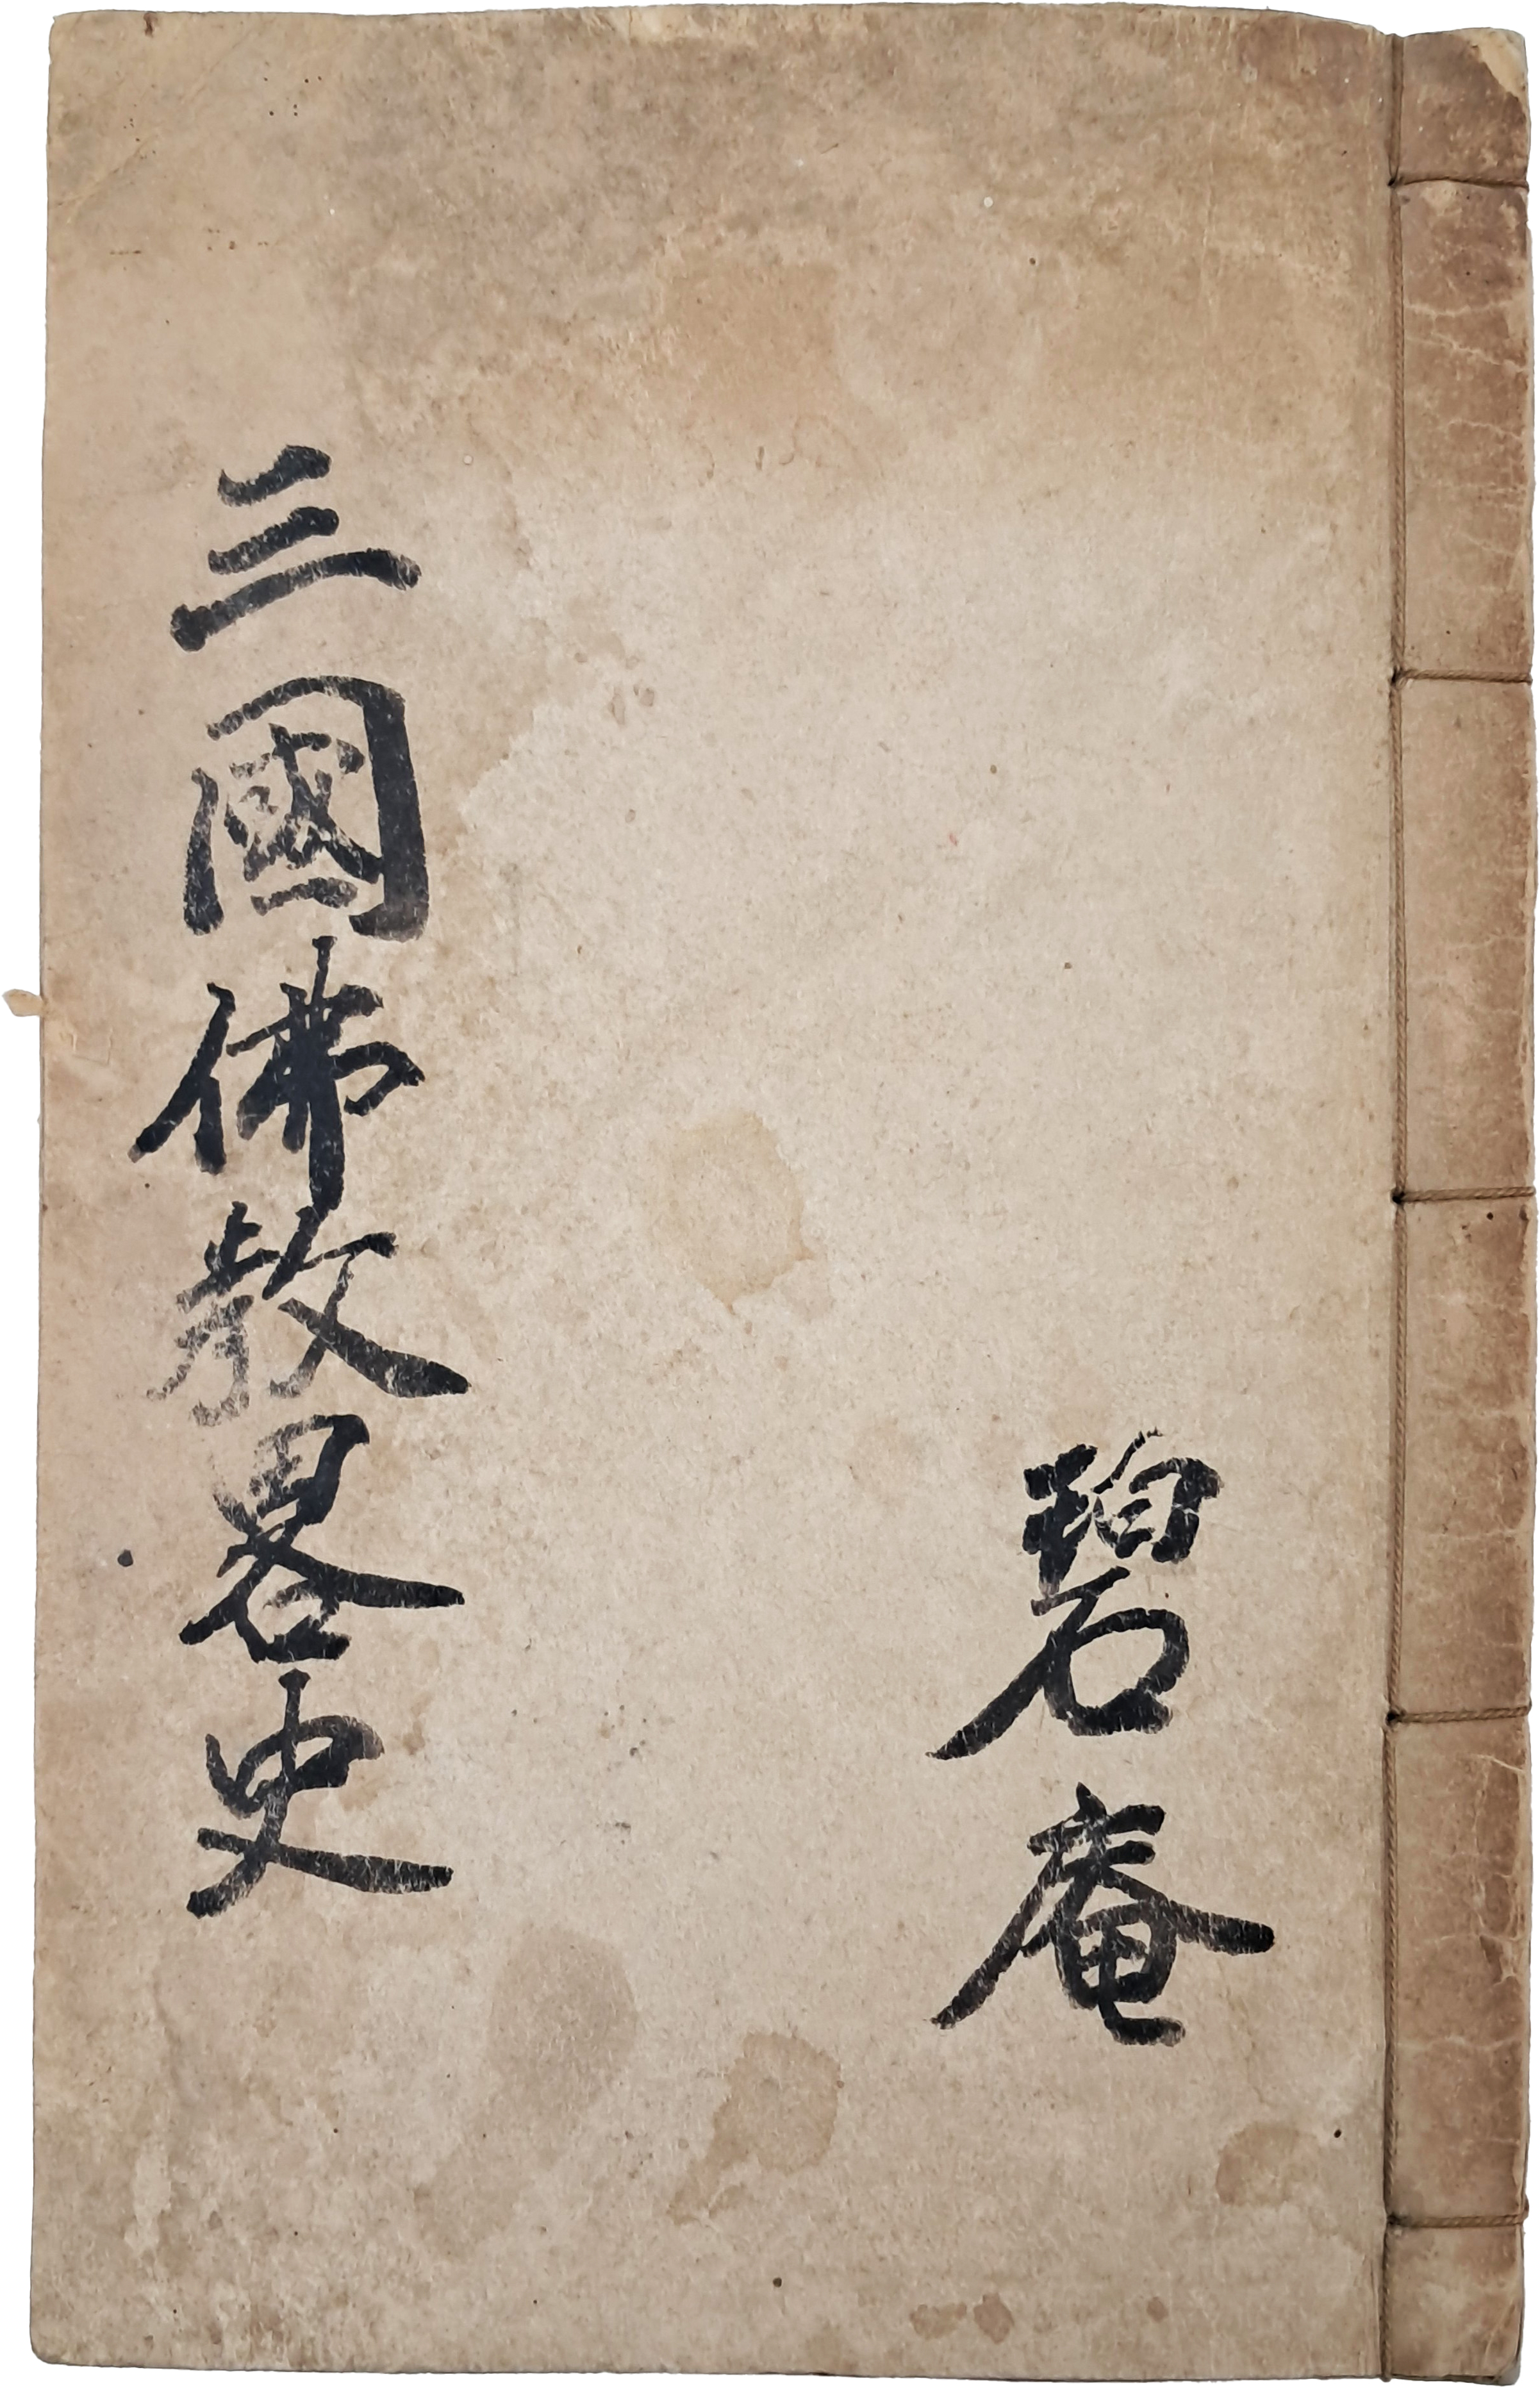 碧庵
三國佛教畧史